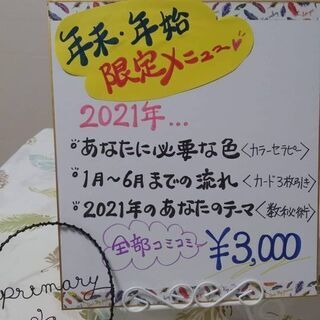 年末・年始
限定メニュー
2021年...
あなたに必要な色〈カラーセラピー〉
1月～6月までの流れ〈カード3枚引き〉
2021年のあなたのテーマ〈数秘術〉
全部コミコミ
¥3,000
primary